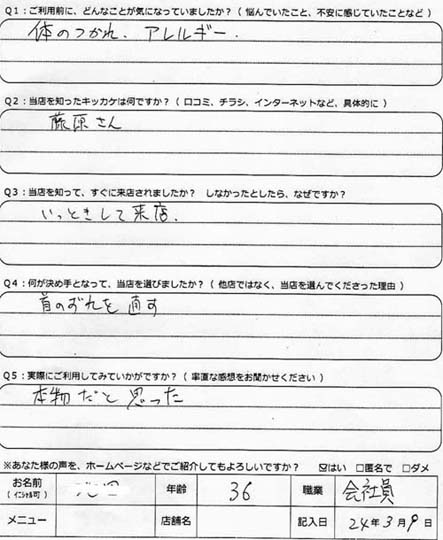 Q1：ご利用前に、どんなことが気になっていましたか？（ 悩んでいたこと、不安に感じていたことなど ）
体のつかれ、アレルギー.
Q2：当店を知ったキッカケは何ですか？（ 口コミ、チラシ、インターネットなど、具体的に ）
藤原さん
Q3：当店を知って、すぐに来店されましたか？ しなかったとしたら、なぜですか？
いっときして来店.
Q4：何が決め手となって、当店を選びましたか？（ 他店ではなく、当店を選んでくださった理由 ）
首のずれを直す
Q5：実際にご利用してみていかがですか？（ 率直な感想をお聞かせください ）
本物だと思った
※あなた様の声を、ホームページなどでご紹介してもよろしいですか？ ☑はい □匿名で □ダメ
お名前（ イニシャル可 ） 年齢 36 職業 会社員
メニュー 店舗名 記入日 24年3月9日